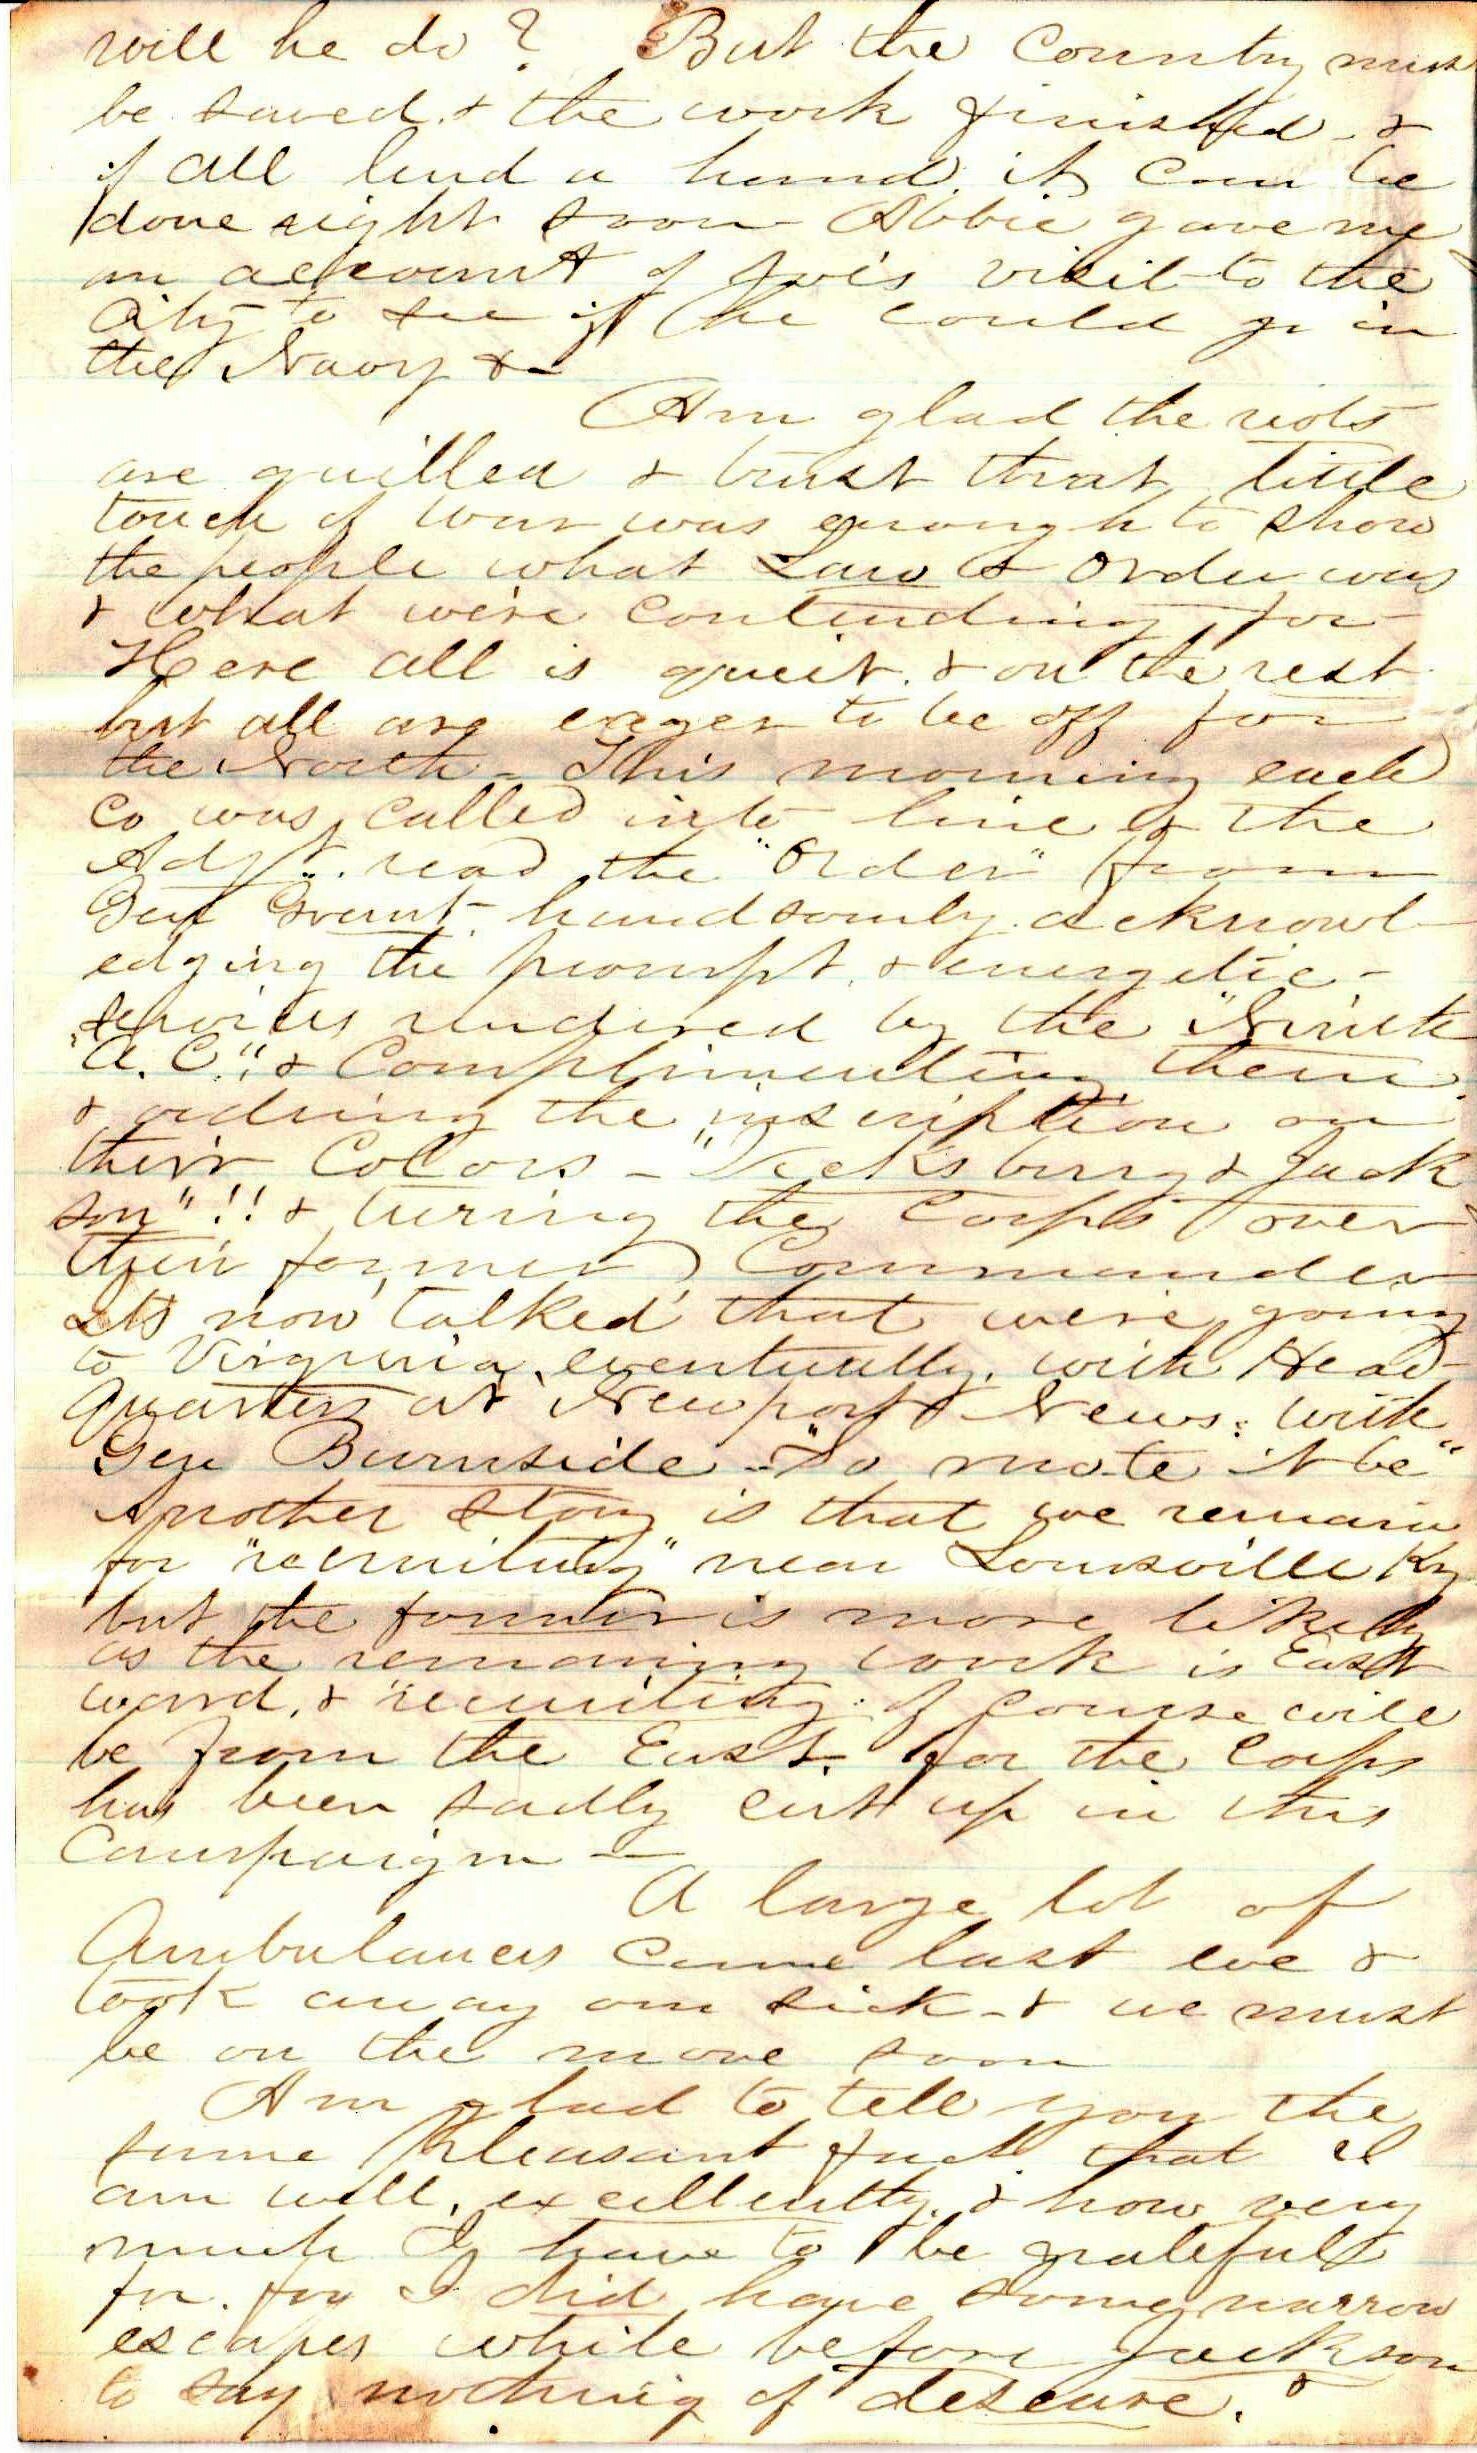 will he do? But the Country must
be saved & the work finished - &
if all lend a hand, it can be
done right soon Abbie gave me
an account of Joe's visit to the
City to see if he could go in
the Navy &-
Am glad the riots
are quilled & trust that little
touch of war was enough to show
the people what Law & Order was
& what we're contending for -
Here all is queit. & on the rest
but all are eager to be off for
the North - This morning each
Co was called into line & the
Adjt. read the "Order" from
Gen Grant handsomly acknowl-
edging the prompt, & energetic -
services rendered by the "Ninth
"A. C.", & Complimenting them
& ordring the inscription on
their Colors - "Vicksburg & Jack
son"!! & turning the Corps over
their former Commander
Its now talked that we're going
to Virginia, eventually, with Head-
quarters at Newport News: with
Gen Burnside - "So mote it be"
Another story is that we remain
for "recruiting" near Louisville Ky
but the former is more likely
as the remaining work is East
ward, & "recruiting" of course will
be from the East. for the Corps
has been sadly cut up in this
Campaign -
A large lot of
Ambulances came last eve &
took away our sick - & we must
be on the move soon
Am glad to tell you the
same pleasant fact that I
am well, excellently, & how very
much I have to be grateful
for. for I did have some narrow
escapes while before Jackson
to say nothing of desease. &